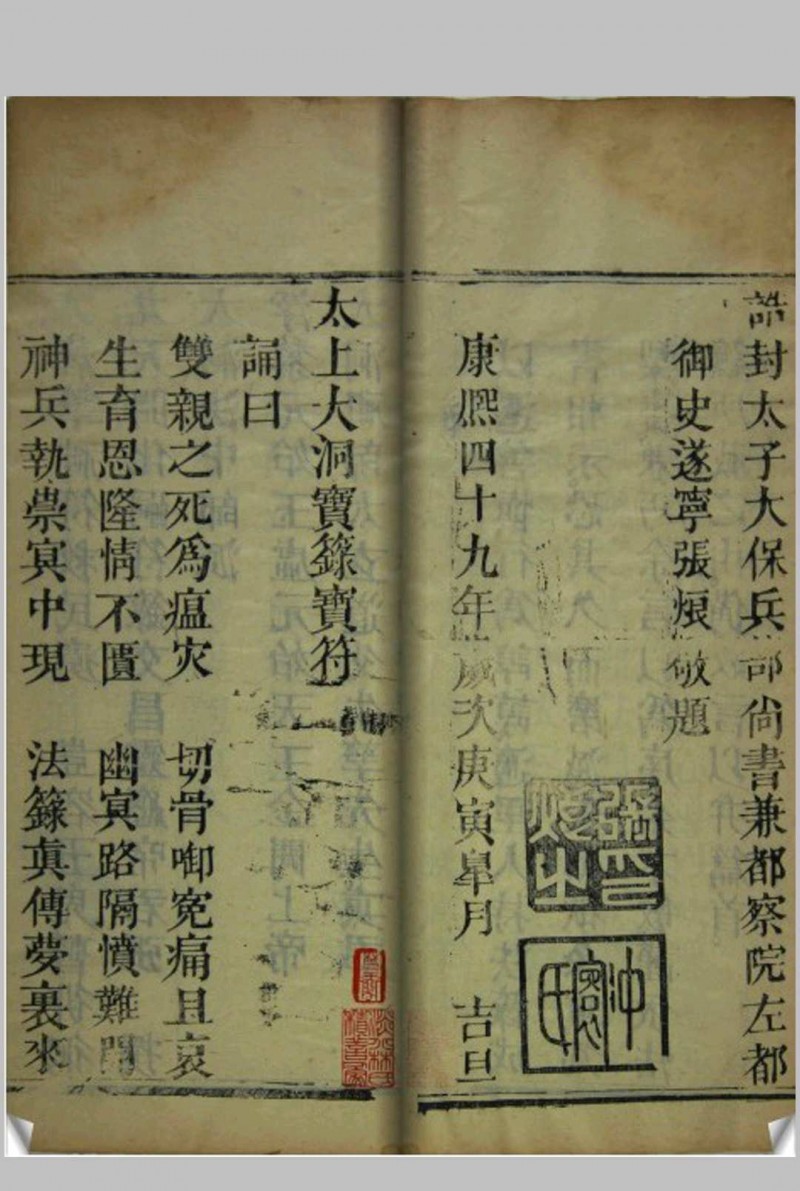 誥封太子大保兵部尚書兼都察院左都
御史遂寧張烺敬題
康熙四十九年歲次庚寅皐月 吉旦
太上大洞寶籙寶符
誦曰
雙親之死爲瘟灾 切骨啣寃痛且哀
生育恩隆情不匱 幽冥路隔憤難開
神兵執祟冥中現 法籙眞傳夢裏來